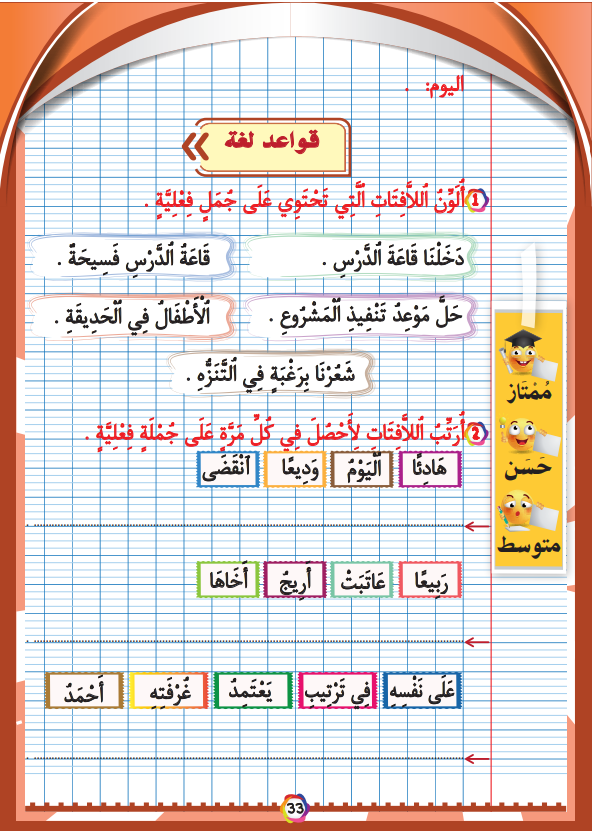 اليوم: .
قواعد لغة
1 أُلَوِّنُ ٱللاَّفِتَاتِ ٱلَّتِي تَحْتَوِي عَلَى جُمَلٍ فِعْلِيَّةٍ .
دَخَلْنَا قَاعَةَ ٱلدَّرْسِ . قَاعَةُ ٱلدَّرْسِ فَسِيحَةٌ .
حَلَّ مَوْعِدُ تَنْفِيذِ ٱلْمَشْرُوعِ . ٱلْأَطْفَالُ فِي ٱلْحَدِيقَةِ .
شَعُرْنَا بِرَغْبَةٍ فِي ٱلتَّنَزُّهِ .
2 أُرَتِّبُ ٱللاَّفِتَاتِ لِأَحْصُلَ فِي كُلِّ مَرَّةٍ عَلَى جُمْلَةٍ فِعْلِيَّةٍ .
هَادِئًا ٱلْيَوْمُ وَدِيعًا ٱنْقَضَى
رَبِيعًا عَاتَبَتْ أَرِيجُ أَخَاهَا
عَلَى نَفْسِهِ فِي تَرْتِيبِ يَعْتَمِدُ غُرْفَتِهِ أَحْمَدُ
مُمْتَاز
حَسَن
متوسط
33